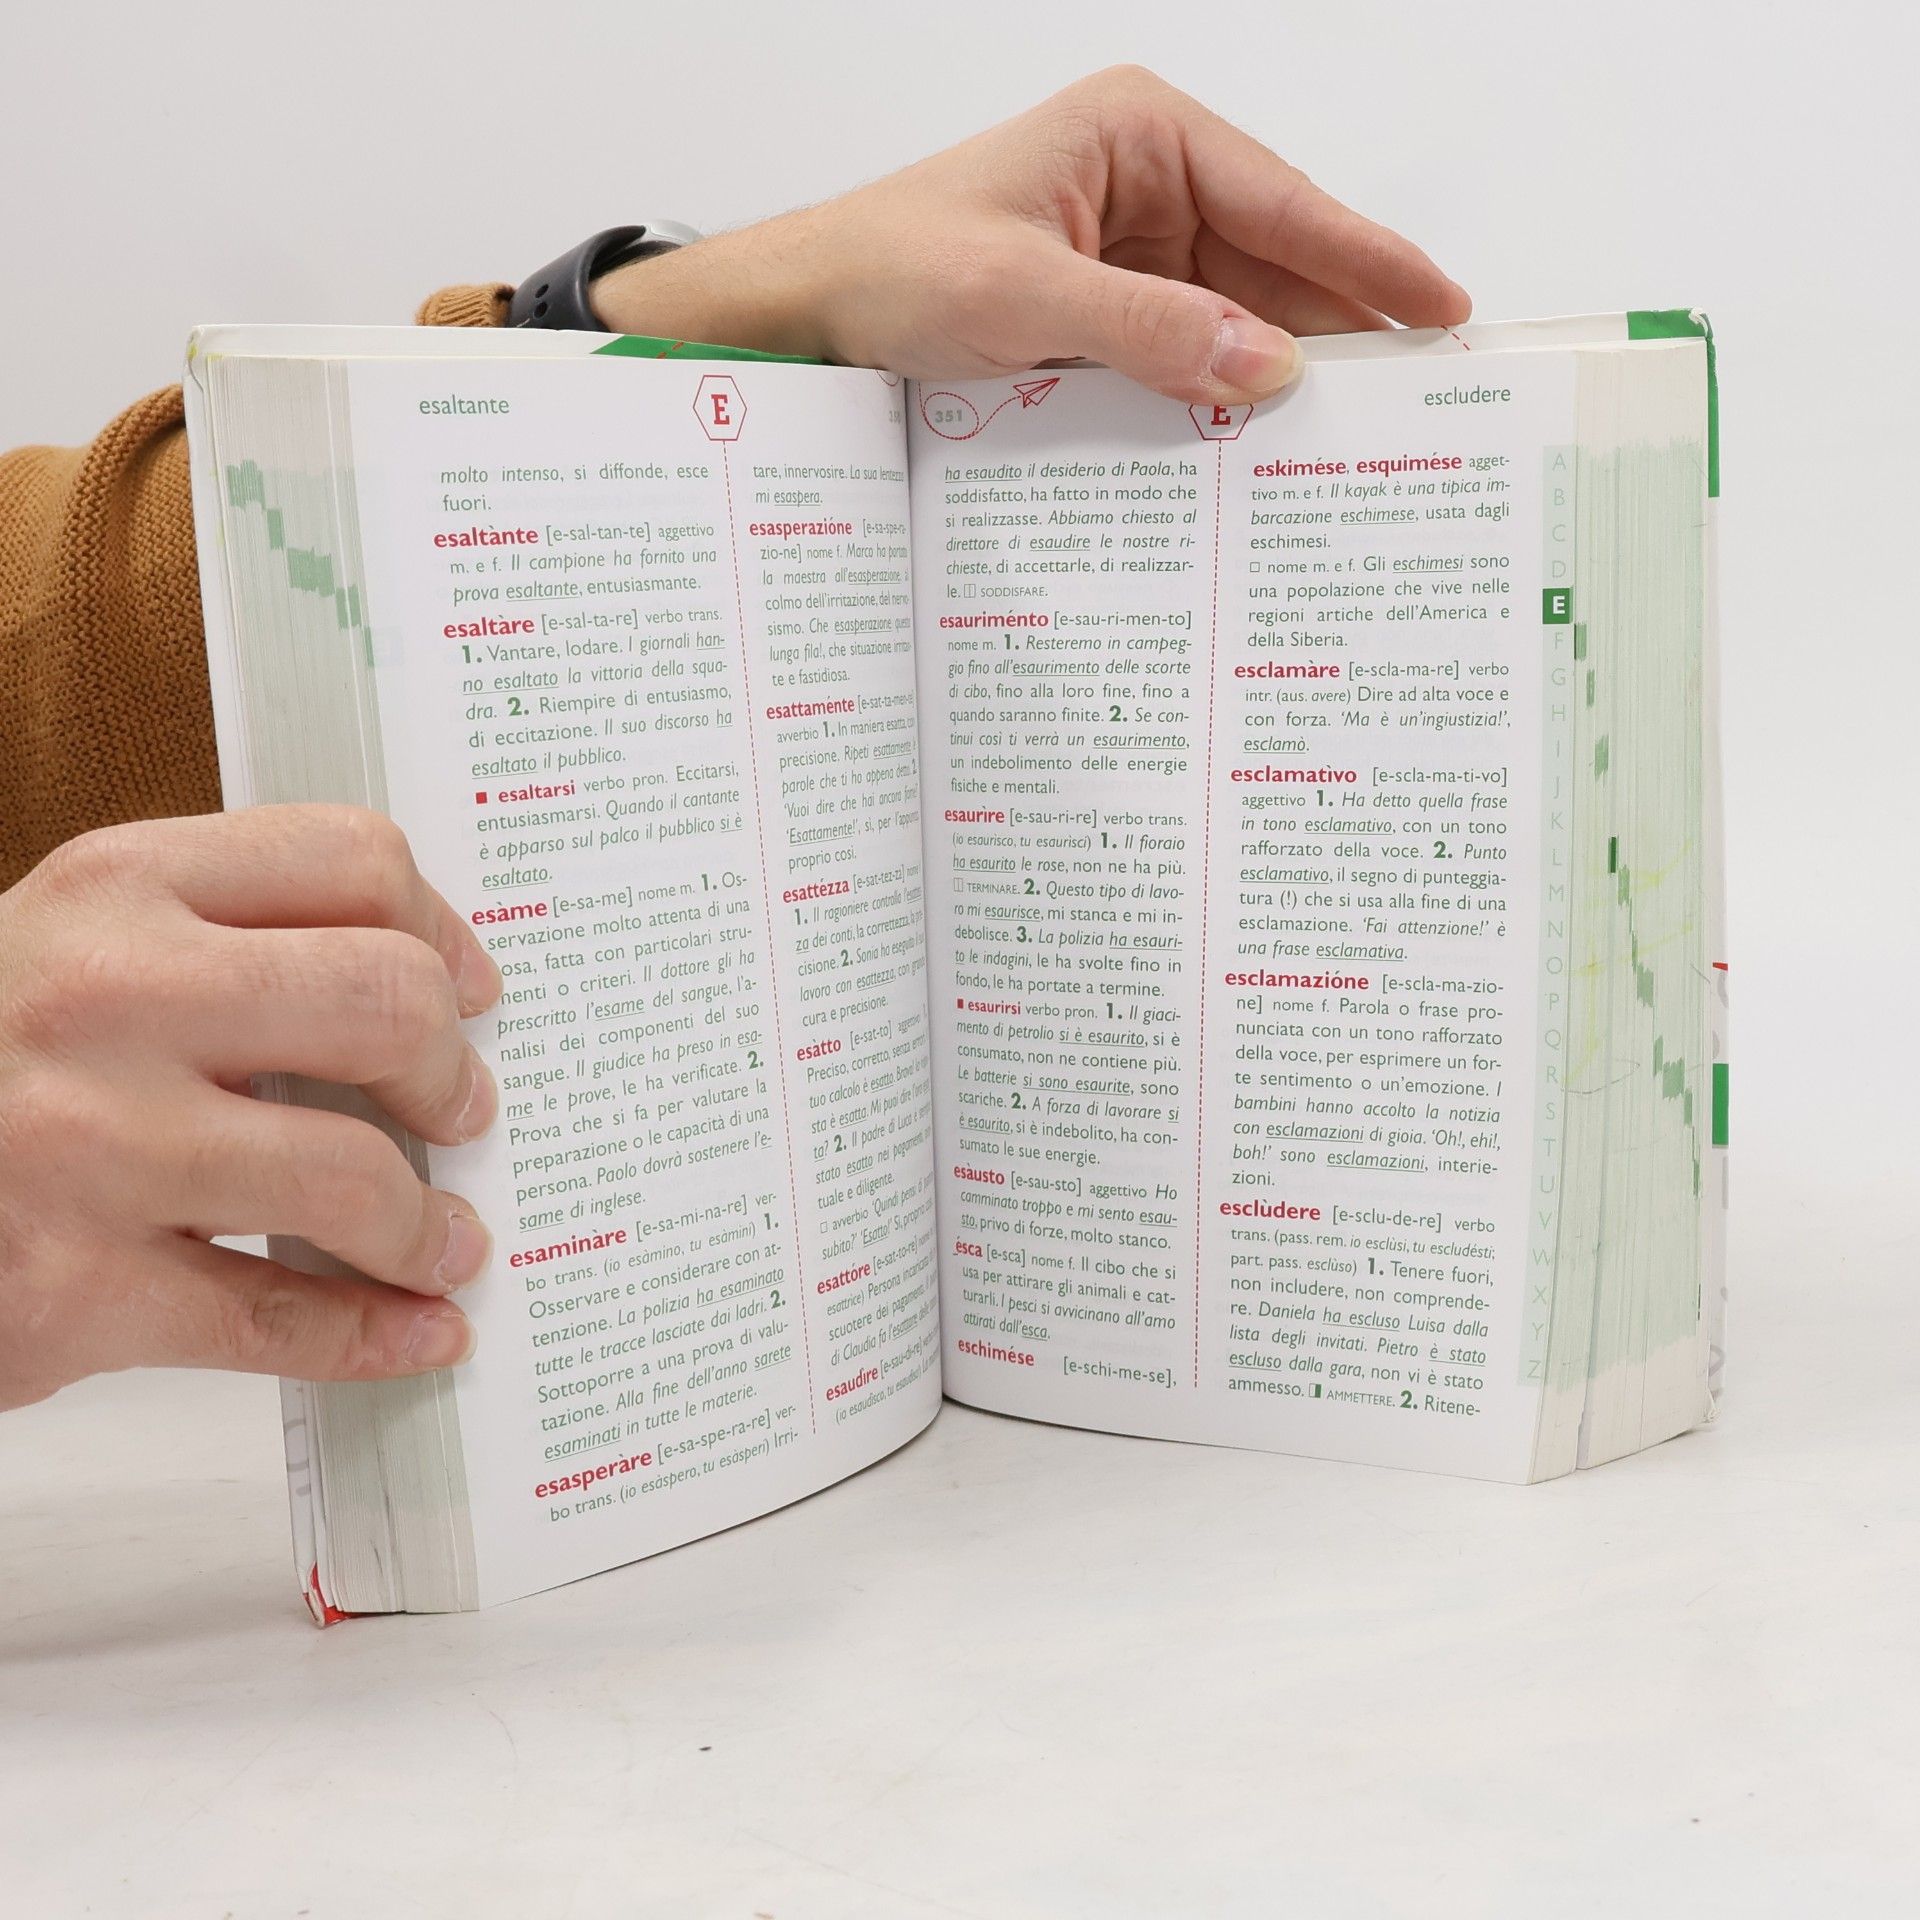 esaltante
E
molto intenso, si diffonde, esce
fuori.
esaltànte [e-sal-tan-te] aggettivo
m. e f. Il campione ha fornito una
prova esaltante, entusiasmante.
esaltàre [e-sal-ta-re] verbo trans.
1. Vantare, lodare. I giornali han-
no esaltato la vittoria della squa-
dra. 2. Riempire di entusiasmo,
di eccitazione. Il suo discorso ha
esaltato il pubblico.
■ esaltarsi verbo pron. Eccitarsi,
entusiasmarsi. Quando il cantante
è apparso sul palco il pubblico si è
esaltato.
esàme [e-sa-me] nome m. 1. Os-
servazione molto attenta di una
osa, fatta con particolari stru-
menti o criteri. Il dottore gli ha
prescritto l'esame del sangue, l'a-
nalisi dei componenti del suo
sangue. Il giudice ha preso in esa-
me le prove, le ha verificate. 2.
Prova che si fa per valutare la
preparazione o le capacità di una
persona. Paolo dovrà sostenere l'e-
same di inglese.
esaminàre [e-sa-mi-na-re] ver-
bo trans. (io esàmino, tu esàmini) 1.
Osservare e considerare con at-
tenzione. La polizia ha esaminato
tutte le tracce lasciate dai ladri. 2.
Sottoporre a una prova di valu-
tazione. Alla fine dell'anno sarete
esaminati in tutte le materie.
esasperàre [e-sa-spe-ra-re] ver-
bo trans. (io esàspero, tu esàsperi) Irri-
tare, innervosire. La sua lentezza
mi esaspera.
esasperazióne [e-sa-spe-ra-
zio-ne] nome f. Marco ha portato
la maestra all'esasperazione, al
colmo dell'irritazione, del nervo-
sismo. Che esasperazione questa
lunga fila!, che situazione irritan-
te e fastidiosa.
esattaménte [e-sat-ta-men-te]
avverbio 1. In maniera esatta, con
precisione. Ripeti esattamente le
parole che ti ho appena detto. 2.
'Vuoi dire che hai ancora fame?'
'Esattamente!', sì, per l'appunto,
proprio così.
esattézza [e-sat-tez-za] nome
1. Il ragioniere controlla l'esattez-
za dei conti, la correttezza, la pre
cisione. 2. Sonia ho eseguito il suo
lavoro con esattezza, con grande
cura e precisione.
esàtto [e-sat-to] aggettivo 1.
Preciso, corretto, senza errori
tuo calcolo è esatto. Bravo! la rispo
sta è esatta. Mi puoi dire l'ora esat
ta? 2. Il padre di Luca è sempre
stato esatto nei pagamenti, pun
tuale e diligente.
□ avverbio 'Quindi pensi di partire
subito?' 'Esatto!' Sì, proprio così.
esattóre [e-sat-to-re] nome
esattrice) Persona incaricata di
scuotere dei pagamenti. Il
di Claudia fa l'esattore delle
esaudìre [e-sau-di-re] verbo
(io esaudisco, tu esaudisci)
351
E
escludere
ha esaudito il desiderio di Paola, ha
soddisfatto, ha fatto in modo che
si realizzasse. Abbiamo chiesto al
direttore di esaudire le nostre ri-
chieste, di accettarle, di realizzar-
le. SODDISFARE.
esauriménto [e-sau-ri-men-to]
nome m. 1. Resteremo in campeg-
gio fino all'esaurimento delle scorte
di cibo, fino alla loro fine, fino a
quando saranno finite. 2. Se con-
tinui così ti verrà un esaurimento,
un indebolimento delle energie
fisiche e mentali.
esaurìre [e-sau-ri-re] verbo trans.
(io esaurisco, tu esaurisci) 1. Il fioraio
ha esaurito le rose, non ne ha più.
TERMINARE. 2. Questo tipo di lavo-
ro mi esaurisce, mi stanca e mi in-
debolisce. 3. La polizia ha esauri-
to le indagini, le ha svolte fino in
fondo, le ha portate a termine.
■ esaurirsi verbo pron. 1. Il giaci-
mento di petrolio si è esaurito, si è
consumato, non ne contiene più.
Le batterie si sono esaurite, sono
scariche. 2. A forza di lavorare si
è esaurito, si è indebolito, ha con-
sumato le sue energie.
esàusto [e-sau-sto] aggettivo Ho
camminato troppo e mi sento esau-
sto, privo di forze, molto stanco.
ésca [e-sca] nome f. Il cibo che si
usa per attirare gli animali e cat-
turarli. I pesci si avvicinano all'amo
attirati dall'esca.
eschimése [e-schi-me-se],
eskimése, esquimése agget-
tivo m. e f. Il kayak è una tipica im-
barcazione eschimese, usata dagli
eschimesi.
□ nome m. e f. Gli eschimesi sono
una popolazione che vive nelle
regioni artiche dell'America e
della Siberia.
esclamàre [e-scla-ma-re] verbo
intr. (aus. avere) Dire ad alta voce e
con forza. 'Ma è un'ingiustizia!',
esclamò.
esclamatìvo [e-scla-ma-ti-vo]
aggettivo 1. Ha detto quella frase
in tono esclamativo, con un tono
rafforzato della voce. 2. Punto
esclamativo, il segno di punteggia-
tura (!) che si usa alla fine di una
esclamazione. 'Fai attenzione!' è
una frase esclamativa.
esclamazióne [e-scla-ma-zio-
ne] nome f. Parola o frase pro-
nunciata con un tono rafforzato
della voce, per esprimere un for-
te sentimento o un'emozione. I
bambini hanno accolto la notizia
con esclamazioni di gioia. 'Oh!, ehi!,
boh!' sono esclamazioni, interie-
zioni.
esclùdere [e-sclu-de-re] verbo
trans. (pass. rem. io esclùsi, tu escludésti;
part. pass. esclùso) 1. Tenere fuori,
non includere, non comprende-
re. Daniela ha escluso Luisa dalla
lista degli invitati. Pietro è stato
escluso dalla gara, non vi è stato
ammesso. AMMETTERE. 2. Ritene-
A
B
C
D
E
F
G
H
I
J
K
L
M
N
O
P
Q
R
S
T
U
V
W
X
Y
Z